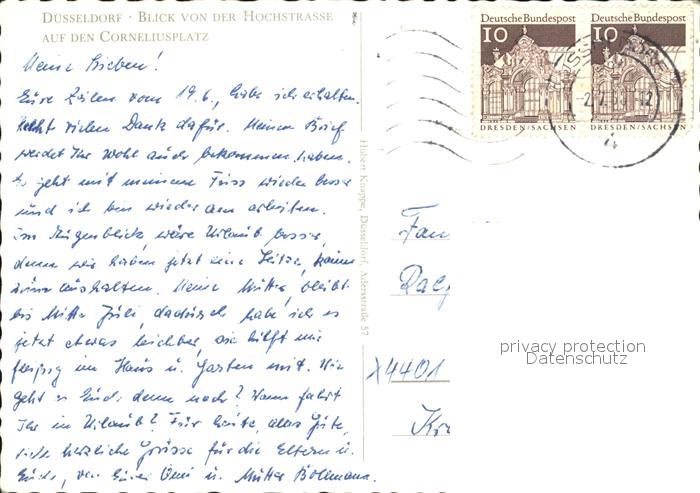 DÜSSELDORF · BLICK VON DER HOCHSTRASSE
AUF DEN CORNELIUSPLATZ
Deutsche Bundespost
10
DRESDEN/SACHSEN
Deutsche Bundespost
10
DRESDEN/SACHSEN
Meine Lieben!
Eure Zeilen vom 19.6., habe ich erhalten.
Recht vielen Dank dafür. Meinen Brief
werdet Ihr wohl auch bekommen haben.
Es geht mit meinem Fuss wieder besser
und ich bin wieder am arbeiten.
Im Augenblick, wäre Urlaub besser,
denn wir haben jetzt eine Hitze, kaum
zum aushalten. Meine Mutter, bleibt
bis Mitte Juli, dadurch habe ich es
jetzt etwas leichter, sie hilft mir
fleissig im Haus u. Garten mit. Wie
geht es Euch denn noch? Wann fahrt
Ihr in Urlaub? Für heute, alles Gute,
viele herzliche Grüsse für die Eltern u.
Euch, von Eurer u. Mutter Bollmann.
Hubert Knuppe, Düsseldorf, Adersstraße 57
Fam
X4401
privacy protection
Datenschutz